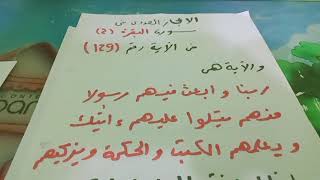 الإعجاز العددى فى
سورة البقرة (2)
من الآية رقم (129)
والآية هى
ربنا وابعث فيهم رسولا
منهم يتلوا عليهم ءايتك
ويعلمهم الكتب والحكمة ويزكيهم